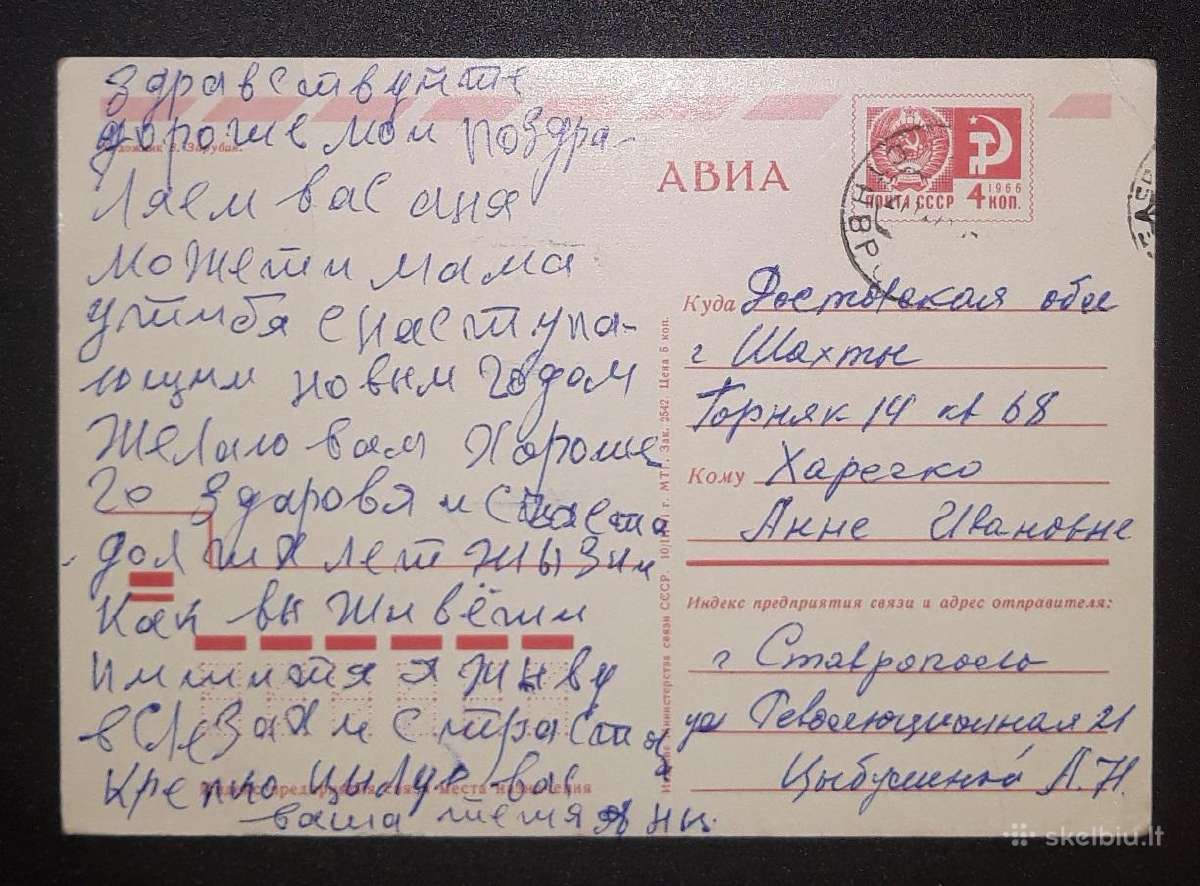 Здравствуйте
дорогие мои поздра-
ляем вас аня
можети мама
у тибя с наступа-
ющим новым годом
Желаю вам хороше
го здаровя и счаста
долгих лет жызни
Как вы живёти
я живу
в слезах и страстях
Крепко цылую вас
ваша тетя
Художник В. Зарубин.
АВИА
1966
ПОЧТА СССР 4 КОП.
Куда Ростовская обл
г Шахты
Горняк 14 кв 68
Кому Харечко
Анне Ивановне
Индекс предприятия связи и адрес отправителя:
г Ставрополь
ул Революционная 21
А. Н.
Индекс предприятия связи места назначения
Министерства связи СССР. МТГ. Зак. 2542. Цена 6 коп.
skelbiu.lt